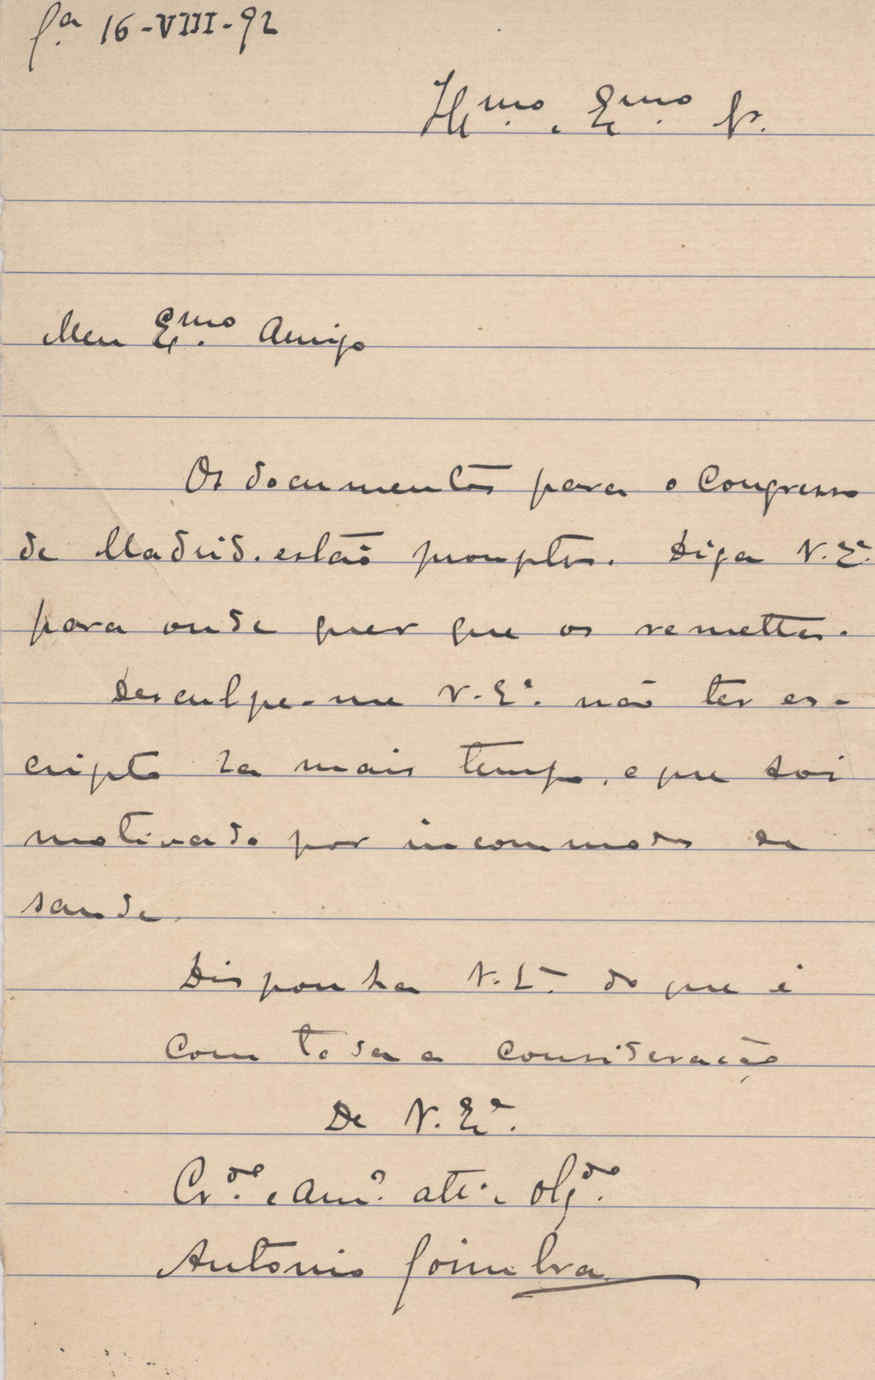 16-VIII-92
Ill.mo e Ex.mo Sr.
Meu Ex.mo Amigo
Os documentos para o Congresso
de Madrid. estão promptos. Diga V. Ex.a
para onde quer que os remetta.
Desculpe-me V. Ex.a não ter es-
cripto ha mais tempo, o que foi
motivado por incommodos de
saude.
Disponha V. Ex.a do que é
com toda a consideração
De V. Ex.a
Cr.do e Am.o att.o e obg.do
Antonio Coimbra